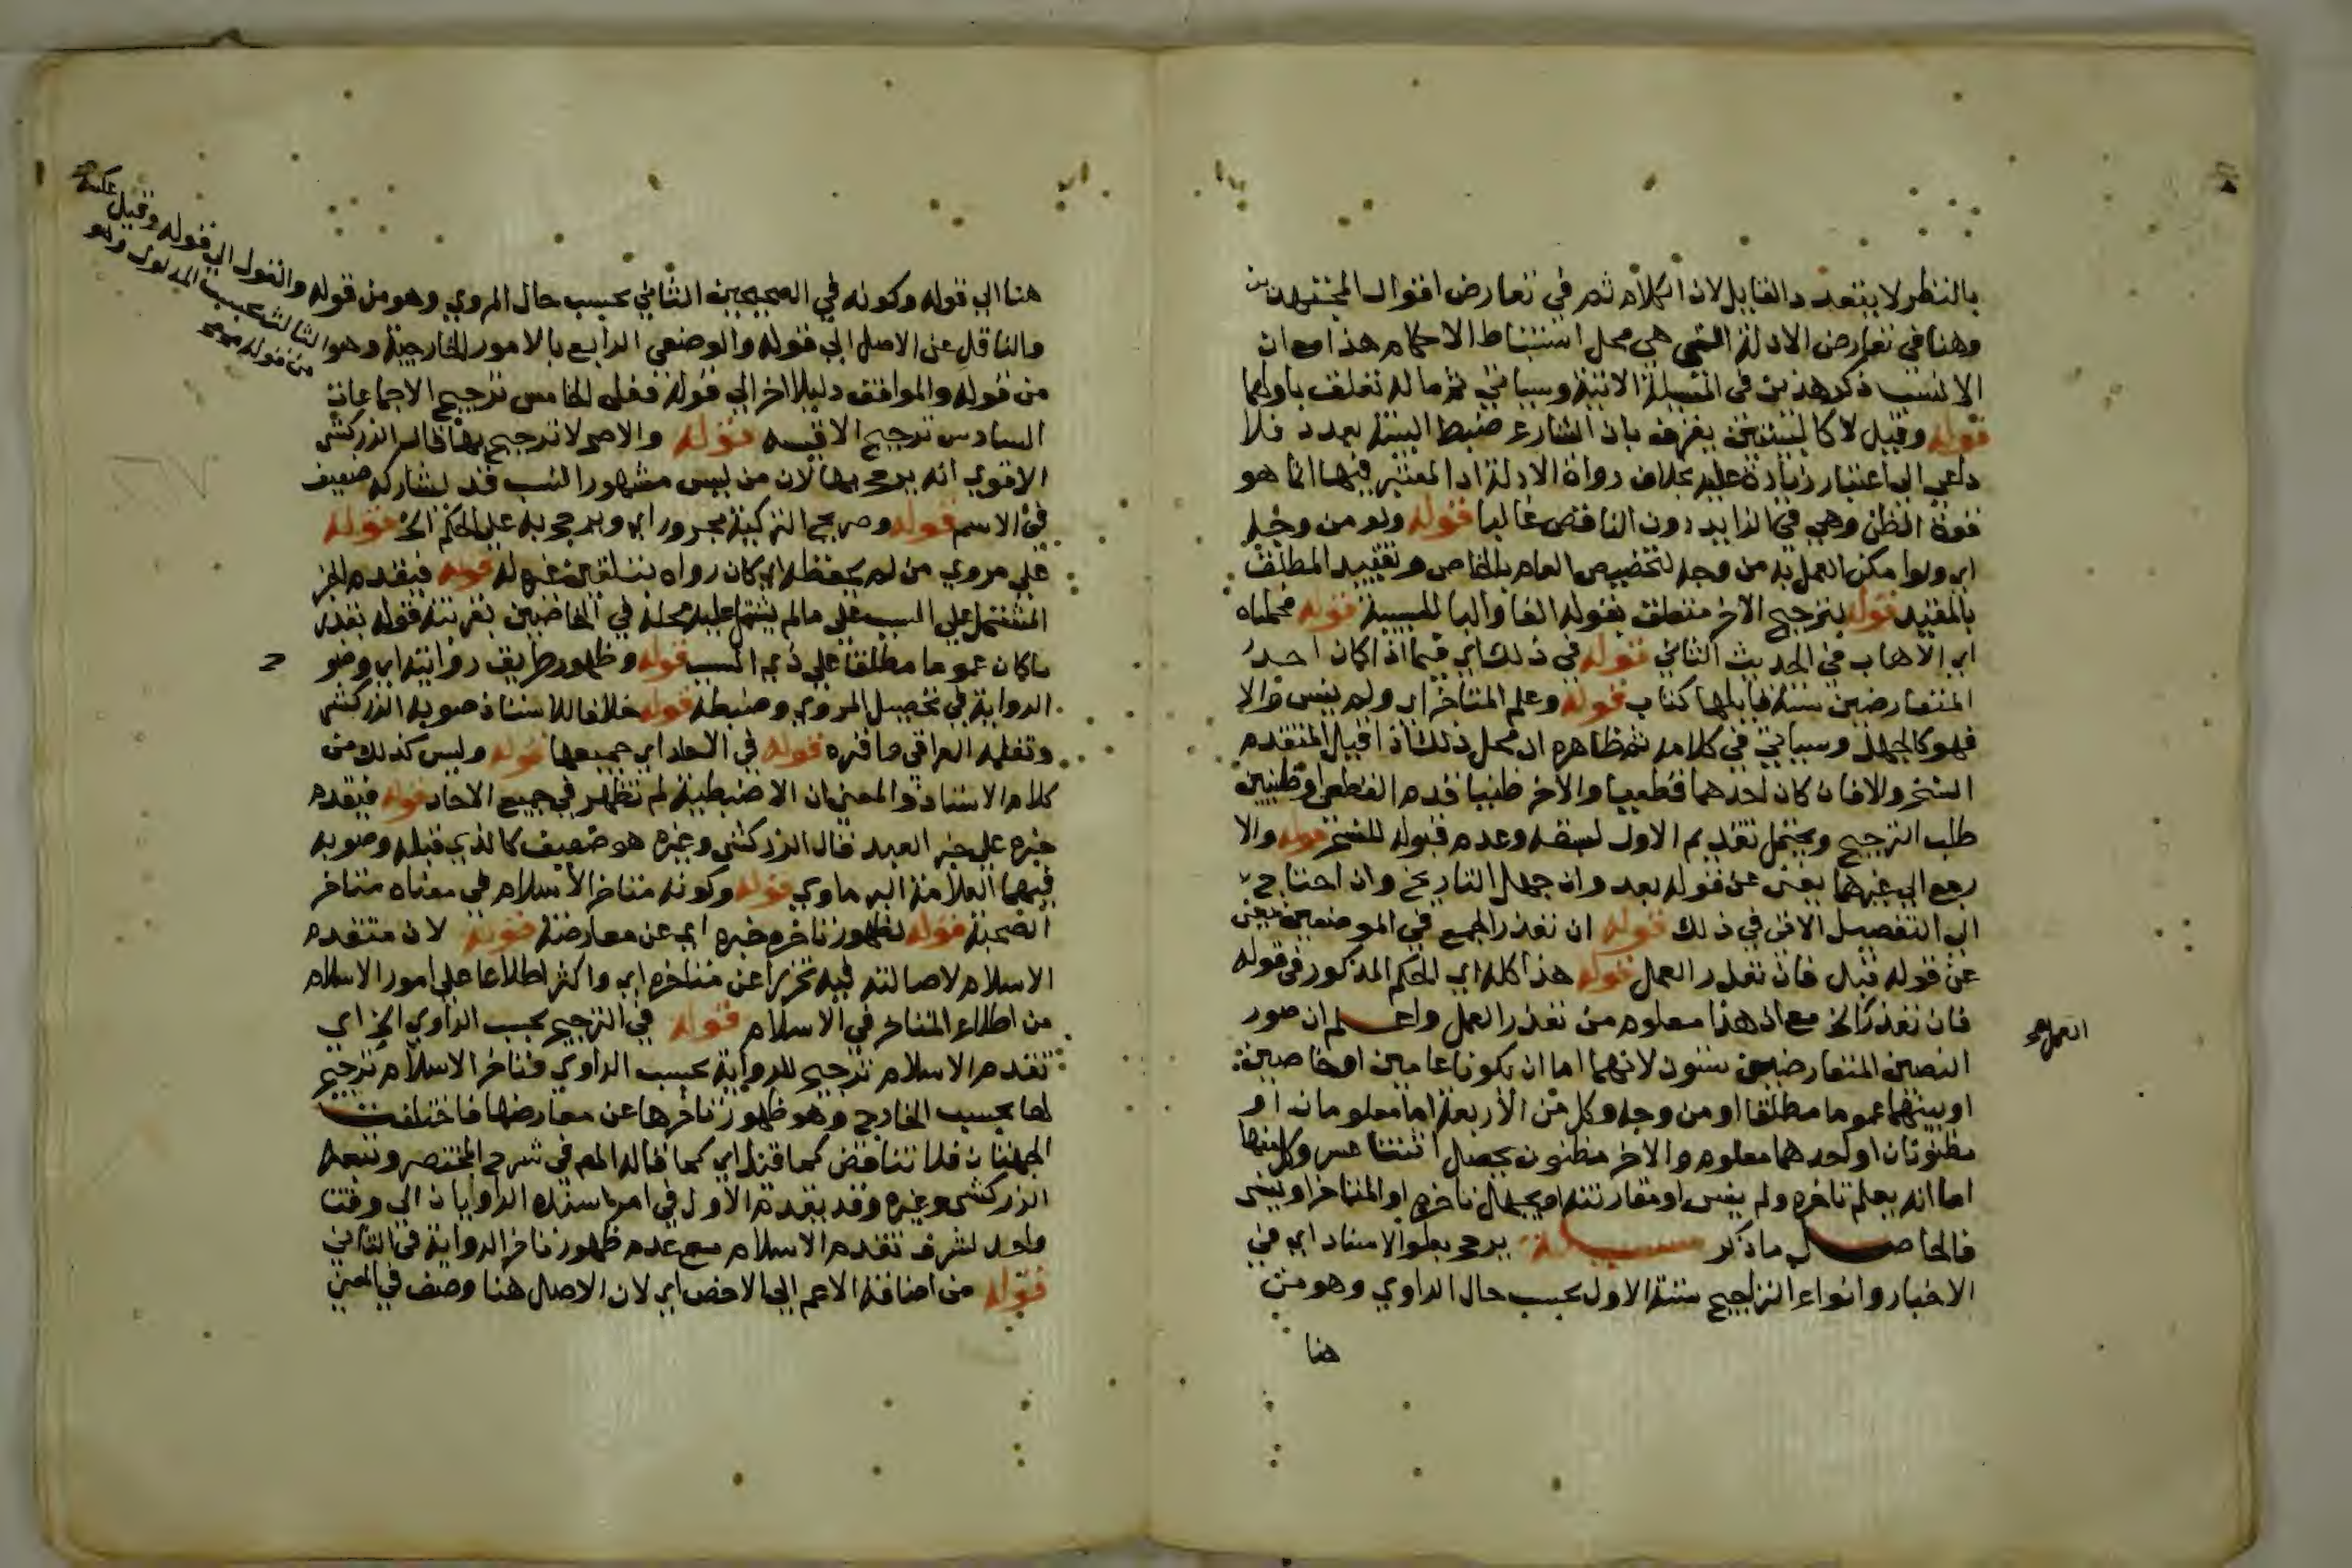 بالنظر لا بتعدد القايل لان الكلام ثم في تعارض اقوال المجتهدين
وهنا في تعارض الادلة التي هي محل استنباط الاحكام هذا مع ان
الانسب ذكر هذين في المسيلة الاتية وسياتي ثم ما له تعلق باولهما
قوله وقيل لا كالبينتين يفرق بان الشارع ضبط البينة بعدد فلا
داعي الى اعتبار زيادة عليه بخلاف رواة الادلة اذ المعتبر فيها انما هو
قوة الظن وهي في الزايد دون الناقص غالبا قوله ولو من وجه
اي ولو امكن العمل به من وجه لتخصيص العام بالخاص وتقييد المطلق
بالمقيد قوله لترجيح الاخر متعلق بقوله الغا والبا للسببية قوله فحملناه
اي الاهاب في الحديث الثاني قوله في ذلك اي فيما اذا كان احد
المتعارضين سنة قابلها كتاب قوله وعلم المتاخر اي ولم ينس والا
فهو كالجهل وسياتي في كلامه ثم ظاهره ان محل ذلك اذا قبل المتقدم
النسخ والا فان كان احدهما قطعيا والاخر ظنيا قدم القطعي او ظنيين
طلب الترجيح ويحتمل تقديم الاول لسبقه وعدم قبوله للنسخ قوله والا
رجع الى غيرهما يغني عن قوله بعد وان جهل التاريخ وان احتاج
الى التفصيل الاتي في ذلك قوله ان تعذر الجمع في الموضعين يغني
عن قوله قبل فان تعذر العمل قوله هذا كله اي الحكم المذكور في قوله
فان تعذر الخ مع ان هذا معلوم من تعذر العمل واعلم ان صور
العمل
النصين المتعارضين ستون لانهما اما ان يكونا عامين او خاصين
او بينهما عموما مطلقا او من وجه وكل من الاربعة اما معلومان او
مظنونان او احدهما معلوم والاخر مظنون يحصل اثنتا عشر وكل منها
اما انه يعلم تاخره ولم ينس او مقارنته او يجهل تاخره او المتاخر او ينسى
فالحاصل ما ذكر مسيلة يرجح بعلو الاسناد اي في
الاخبار وانواع التراجيح ستة الاول بحسب حال الراوي وهو من
هنا
هنا الي قوله وكونه في الصحيحين الثاني بحسب حال المروي وهو من قوله والقول الي قوله وقيل عكسه
والناقل عن الاصل الي قوله والوضعي الرابع بالامور الخارجية وهو الثالث بحسب المدلول وهو
من قوله
من قوله والموافق دليلا اخر الي قوله فعلي الخامس ترجيح الاجماعات
السادس ترجيح الاقيسة قوله والاصح لا ترجيح بها قال الزركشي
الاقوي انه يرجح بها لان من ليس مشهور النسب قد يشاركه ضعيف
في الاسم قوله وصريح التزكية مجرور اي ويرجح به علي الحكم الخ قوله
علي مروي من لم يحفظه اي كان رواه بتلقين غيره له قوله فيقدم الخبر
المشتمل علي السبب علي ما لم يشتمل عليه محله في الخاصين بقرينة قوله بعد
ما كان عموما مطلقا علي ذي السبب قوله وظهور طريق روايته اي وضو
ح
الرواية في تحصيل المروي وضبطه قوله خلافا للاستاذ صوبه الزركشي
وتعليه العراقي ما قره قوله في الاحاد اي جميعها قوله وليس كذلك من
كلام الاستاذ والمعني ان الاضبطية لم تظهر في جميع الاحاد قوله فيقدم
خبره علي خبر العبد قال الزركشي وغيره هو ضعيف كالذي قبله وصوبه
فيهما العلامة البرماوي قوله وكونه متاخر الاسلام في معناه متاخر
الصحبة قوله لظهور تاخر خبره اي عن معارضة قوله لان متقدم
الاسلام لاصالته فيه تحرزا عن متاخره اي واكثر اطلاعا علي امور الاسلام
من اطلاع المتاخر في الاسلام قوله في الترجيح بحسب الراوي الخ اي
تقدم الاسلام ترجيح للرواية بحسب الراوي وتاخر الاسلام ترجيح
لها بحسب الخارج وهو ظهور تاخرها عن معارضها فاختلفت
الجهتان فلا تناقض كما قيل اي كما قاله المص في شرح المختصر وتبعه
الزركشي وغيره وقد يقدم الاول في امر اسنده الراويان الي وقت
واحد لشرف تقدم الاسلام مع عدم ظهور تاخر الرواية في الثاني
قوله من اضافة الاعم الي الاخص اي لان الاصل هنا وصف في المعني